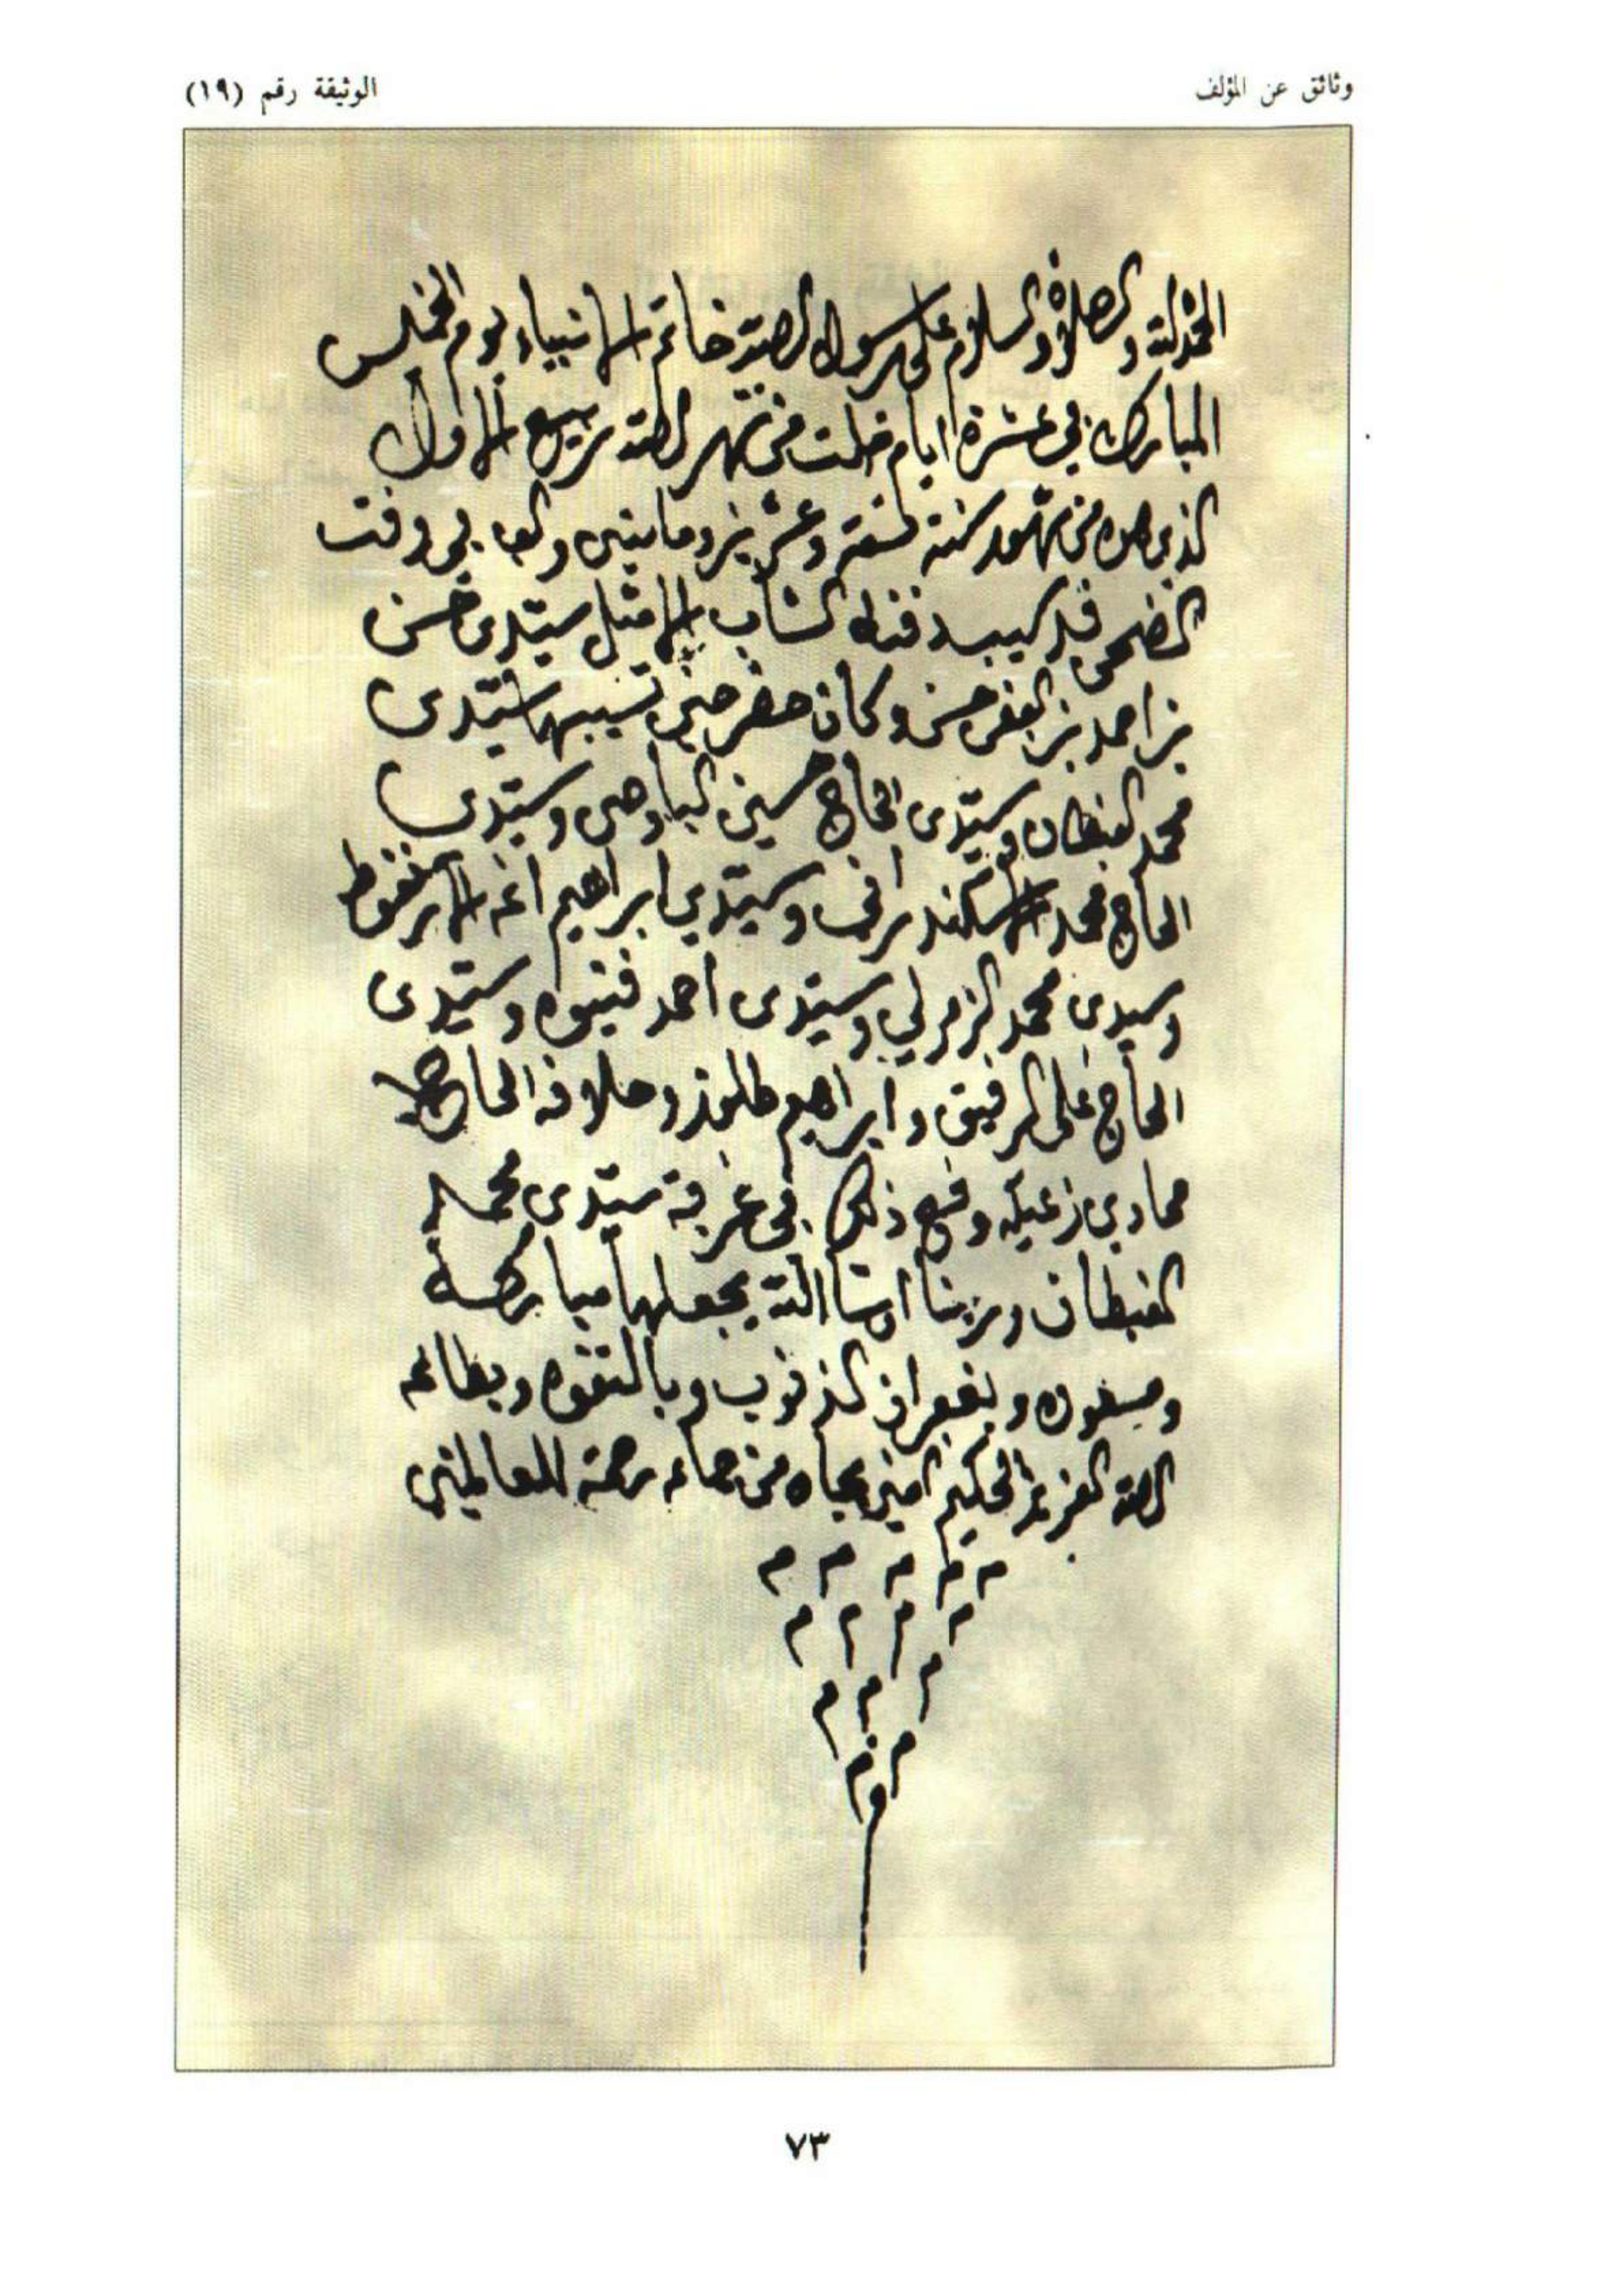 وثائق عن المؤلف
الوثيقة رقم (١٩)
الحمد لله والصلاة والسلام على رسول الله خاتم الانبياء يوم الخميس
المبارك في عشرة ايام خلت من شهر الله ربيع الاول
الذي هو من شهور سنة تسعة وعشرين ومايتين والف في وقت
الضحى قد سيب دقنه الشاب الامثل سيدي حسن
بن احمد بن الفقي حسن وكان حضر حين تسيبها سيدي
محمد القبطان وسيدي الحاج حسين الباوحي وسيدي
الحاج محمد الاسكندراني وسيدي ابراهيم اغه الارنقوط
وسيدي محمد الزمرلي وسيدي احمد قنيوه وسيدي
الحاج علي الرفيق وابراهيم وحلاقه الحاج
حمادي زعيكه وقع ذلك في غرفة سيدي محمد
القبطان وربنا انشا الله يجعلها مباركه
ومسعوده وبغفران الذنوب وبالتقوه وبطاعه
الله العزيز الحكيم امين بجاه من جاء رحمة للعالمين
م م م م م
م م م م
م م م
م م
٧٣